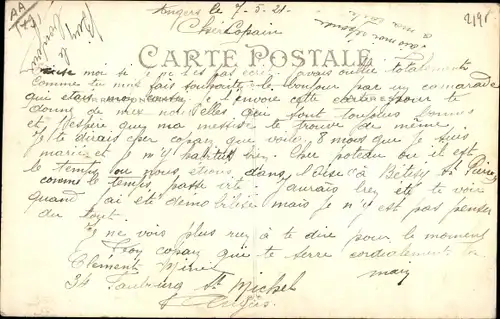 AA
149
Angers le 7-5-21
2195
Cher Copain
CARTE POSTALE
moi si je ne t'ai pas écrit j'avais oublié totalement
comme tu m'as fait souhaiter le bonjour par un camarade
qui était je t'envoie cette carte pour te
donner de mes nouvelles qui sont toujours bonnes
et j'espère que ma te trouve de même
Je te dirais cher copain que voilà 8 mois que je suis
marié et je m'y habitue bien. Cher poteau ou il est
le temps ou nous étions dans l'Oise à Betisy St Pierre
comme le temps passe vite. J'aurais bien été te voir
quand j'ai été démobilisé mais je n'y est pas penser
du tout.
Je ne vois plus rien à te dire pour le moment
Ton copain qui te serre cordialement la
main
Clément
34 Faubourg St Michel
Angers